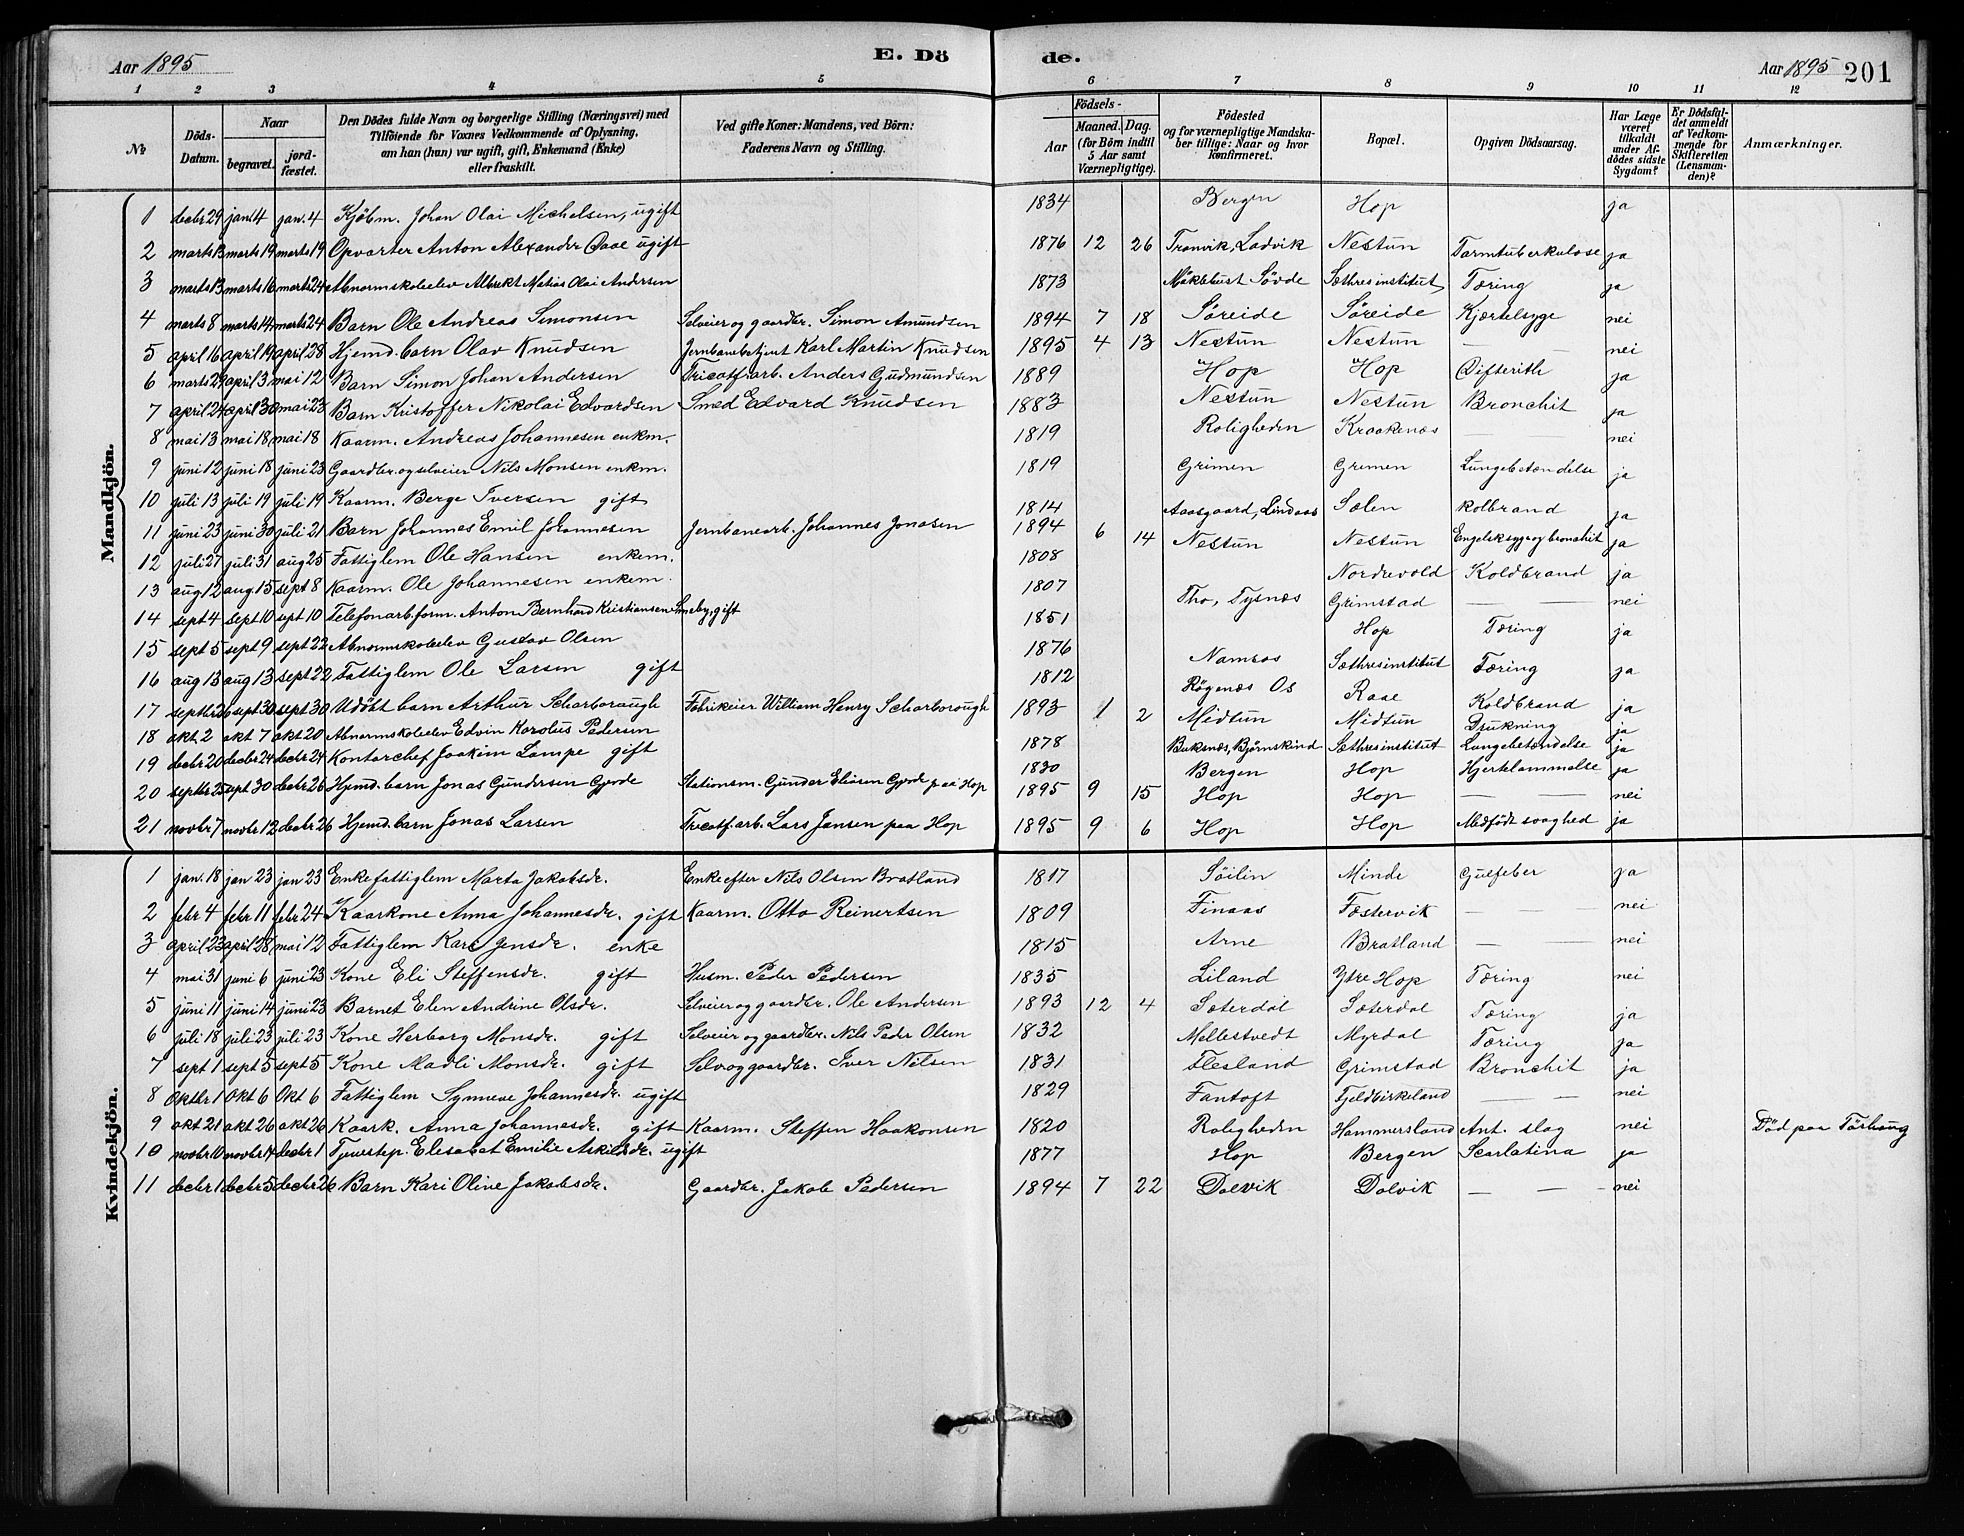 Aar 1895 E. Dö de. Aar 1895 201
1 2 3 4 5 6 7 8 9 10 11 12
№ Döds-Datum. Naar begravet. jordfæstet. Den Dödes fulde Navn og borgerlige Stilling (Næringsvei) med Tilföiende for Voxnes Vedkommende af Oplysning, om han (hun) var ugift, gift, Enkemand (Enke) eller fraskilt. Ved gifte Koner: Mandens, ved Börn: Faderens Navn og Stilling. Födsels- Aar Maaned. Dag. (for Börn indtil 5 Aar samt Værnepligtige). Födested og for værnepligtige Mandskaber tillige: Naar og hvor konfirmeret. Bopæl. Opgiven Dödsaarsag. Har Læge været tilkaldt under Afdödes sidste Sygdom? Er Dödsfaldet anmeldt af Vedkommende for Skifteretten (Lensmanden)? Anmærkninger.
Mandkjön.
1 decbr 29 jan. 4 jan. 4 Kjöbm. Johan Olai Michelsen, ugift 1834 Bergen Hop ja
2 marts 13 marts 19 marts 19 Opvarter Anton Alexander Daae ugift 1876 12 26 Tronvik, Ladvik Nestun Tarmtuberkulose ja
3 marts 13 marts 16 marts 24 Abnormskoleelev Albrekt Matias Olai Andersen 1873 Möklebust Sövde Sæthresinstitut Tæring ja
4 marts 8 marts 14 marts 24 Barn Ole Andreas Simonsen Selveier og gaardbr. Simon Amundsen 1894 7 18 Söreide Söreide Kjertelsyge nei
5 april 16 april 19 april 28 Hjemd. barn Olav Knudsen Jernbanebetjent Karl Martin Knudsen 1895 4 13 Nestun Nestun — — nei
6 marts 29 april 3 mai 12 Barn Simon Johan Andersen Tricotf.arb. Anders Gudmundsen 1889 Hop Hop Difterith ja
7 april 24 april 30 mai 23 Barn Kristoffer Nikolai Edvardsen Smed Edvard Knudsen 1883 Nestun Nestun Bronchit ja
8 mai 13 mai 18 mai 18 Kaarm. Andreas Johannesen enkm. 1819 Roligheden Kraakenæs — — nei
9 juni 12 juni 18 juni 23 Gaardbr. og selveier Nils Monsen enkm. 1819 Grimen Grimen Lungebetændelse ja
10 juli 13 juli 19 juli 19 Kaarm. Berge Iversen gift 1814 Aasgaard, Lindaas Sælen kolbrand ja
11 juni 23 juni 30 juli 21 Barn Johannes Emil Johannesen Jernbanearb. Johannes Jonasen 1894 6 14 Nestun Nestun Engelsksyge og bronchit ja
12 juli 27 juli 31 aug 25 Fattiglem Ole Hansen enkem. 1808 Nordrevold Koldbrand ja
13 aug 12 aug 15 sept 8 Kaarm. Ole Johannesen enkem. 1807 Tho, Tysnæs Grimstad — — nei
14 sept 4 sept 10 sept 10 Telefonarb.form. Anton Bernhard Kristiansen Smeby, gift 1851 Hop Tæring ja
15 sept 5 sept 9 sept 22 Abnormskoleelev Gustav Olsen 1876 Namsos Sæthresinstitut Tæring ja
16 aug 13 aug 13 sept 22 Fattiglem Ole Larsen gift 1812 Rögenæs Os Raae Koldbrand ja
17 septbr 26 sept 30 sept 30 Udöbt barn Arthur Scharborough Fabrikeier William Henry Scharborough 1893 1 2 Midtun Midtun Drukning ja
18 okt 2 okt 7 okt 20 Abnormskoleelev Edvin Karolus Pedersen 1878 Buksnæs, Björnskind Sæthresinstitut Lungebetændelse ja
19 decbr 20 decbr 24 decbr 24 Kontorchef Joakim Lampe gift 1830 Bergen Hop Hjertelammelse ja
20 septbr 25 sept 30 decbr 26 Hjemd. barn Jonas Gundersen Gjerde Stationsm. Gunder Eliasen Gjerde paa Hop 1895 9 15 Hop Hop — — nei
21 novbr 7 novbr 12 decbr 26 Hjemd. barn Jonas Larsen Tricotf.arb. Lars Jansen paa Hop 1895 9 6 Hop Hop Medfödt svaghed ja
Kvindekjön.
1 jan. 18 jan 23 jan 23 Enke fattiglem Marta Jakobsdr. Enke efter Nils Olsen Bratland 1817 Söilin Minde Gulfeber ja
2 febr 4 febr 11 febr 24 Kaarkone Anna Johannesdr. gift Kaarm. Otto Reinertsen 1809 Finaas Fæstervik — — nei
3 april 23 april 28 mai 12 Fattiglem Kari Jensdr. enke 1815 Arne Bratland — — nei
4 mai 31 juni 6 juni 23 Kone Eli Steffensdr. gift Husm. Peder Pedersen 1835 Liland Ytre Hop Tæring nei
5 juni 11 juni 14 juni 23 Barnet Elen Andrine Olsdr. Selveier og gaardbr. Ole Andersen 1893 12 4 Sæterdal Sæterdal Tæring ja
6 juli 18 juli 23 juli 23 Kone Herborg Monsdr. gift Selveier og gaardbr. Nils Peder Olsen 1832 Mellestvedt Myrdal Tæring ja
7 sept 1 sept 5 sept 5 Kone Madli Monsdr. gift Selv og gaardbr. Iver Nilsen 1831 Flesland Grimstad Bronchit ja
8 Oktbr 1 Okt 6 Okt 6 Fattiglem Synneve Johannesdr. ugift 1829 Fantoft Fjeldbirkeland — — nei
9 okt 21 okt 26 okt 26 Kaark. Anna Johannesdr. gift Kaarm. Steffen Haakonsen 1820 Roligheden Hammersland Ant. slag nei Död paa
10 novbr 10 novbr 14 decbr 1 Tjenestep. Elesabet Emilie Askildsdr. ugift 1877 Hop Bergen Scarlatina ja
11 decbr 1 decbr 5 decbr 26 Barn Kari Oline Jakobsdr. Gaardbr. Jakob Pedersen 1894 7 22 Dolvik Dolvik — — nei